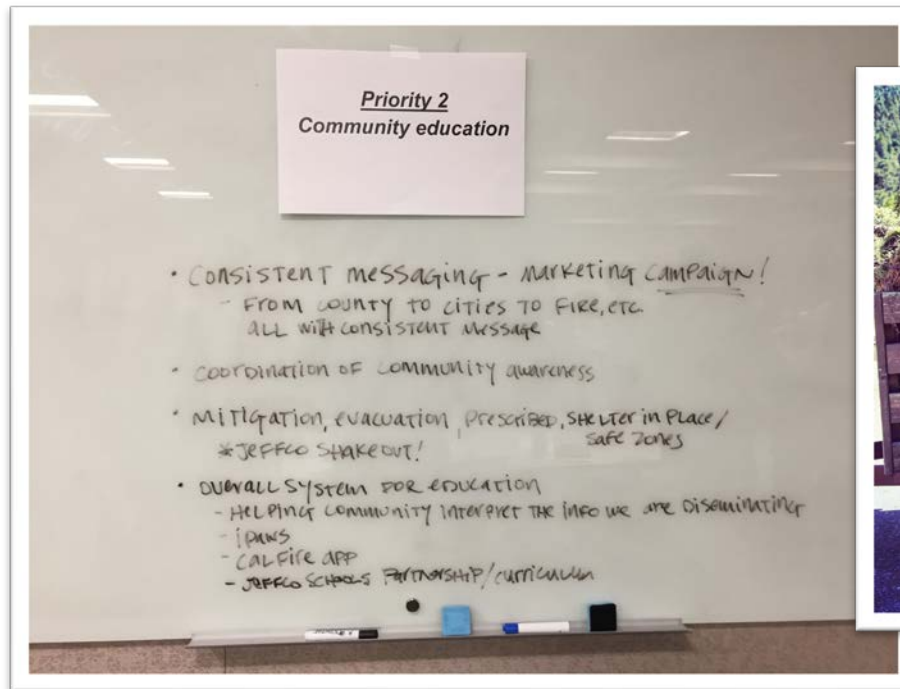 Priority 2
Community education
• CONSISTENT MESSAGING - MARKETING CAMPAIGN!
- FROM COUNTY TO CITIES TO FIRE, ETC.
ALL WITH CONSISTENT MESSAGE
• COORDINATION OF COMMUNITY AWARENESS
• MITIGATION, EVACUATION, PRESCRIBED, SHELTER IN PLACE/
SAFE ZONES
*JEFFCO SHAKEOUT!
• OVERALL SYSTEM FOR EDUCATION
- HELPING COMMUNITY INTERPRET THE INFO WE ARE DISEMINATING
- IPAWS
- CALFIRE APP
- JEFFCO SCHOOLS PARTNERSHIP/CURRICULUM